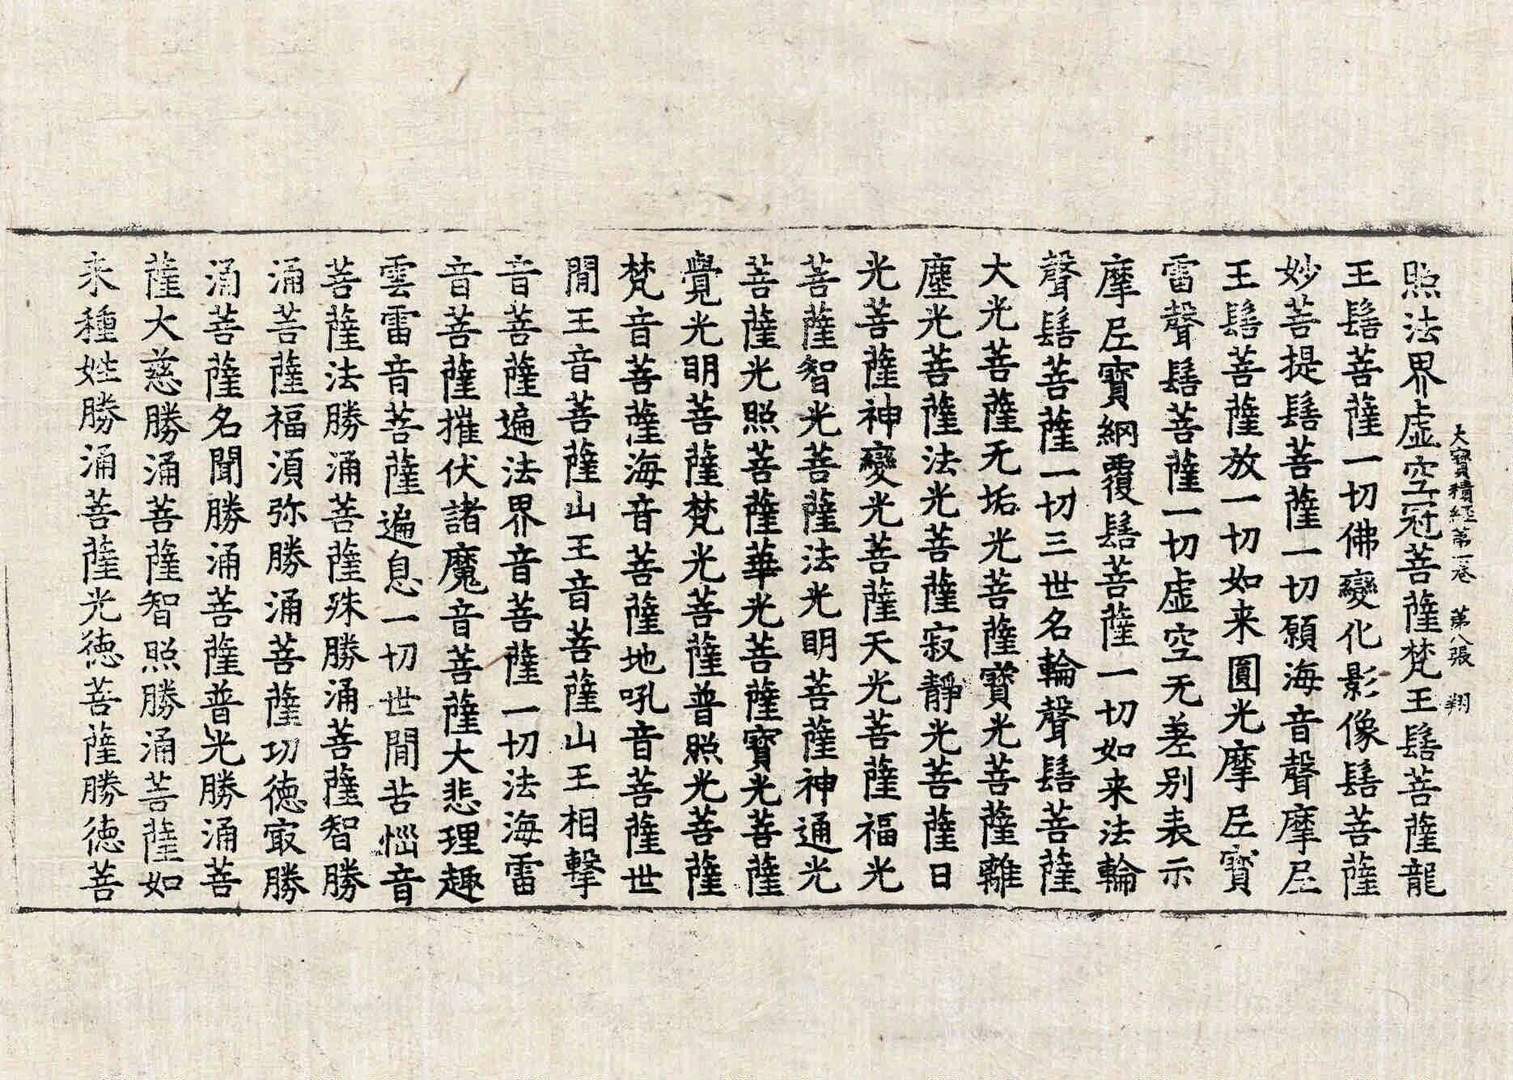 大寶積經第一卷　第八張　翔
照法界虛空冠菩薩梵王髻菩薩龍
王髻菩薩一切佛變化影像髻菩薩
妙菩提髻菩薩一切願海音聲摩尼
王髻菩薩放一切如来圓光摩尼寶
雷聲髻菩薩一切虛空无差别表示
摩尼寶網覆髻菩薩一切如来法輪
聲髻菩薩一切三世名輪聲髻菩薩
大光菩薩无垢光菩薩寶光菩薩離
塵光菩薩法光菩薩寂靜光菩薩日
光菩薩神變光菩薩天光菩薩福光
菩薩智光菩薩法光明菩薩神通光
菩薩光照菩薩華光菩薩寶光菩薩
覺光明菩薩梵光菩薩普照光菩薩
梵音菩薩海音菩薩地吼音菩薩世
間王音菩薩山王音菩薩山王相擊
音菩薩遍法界音菩薩一切法海雷
音菩薩摧伏諸魔音菩薩大悲理趣
雲雷音菩薩遍息一切世間苦惱音
菩薩法勝涌菩薩殊勝涌菩薩智勝
涌菩薩福湏弥勝涌菩薩功徳㝡勝
涌菩薩名聞勝涌菩薩普光勝涌菩
薩大慈勝涌菩薩智照勝涌菩薩如
来種姓勝涌菩薩光徳菩薩勝徳菩